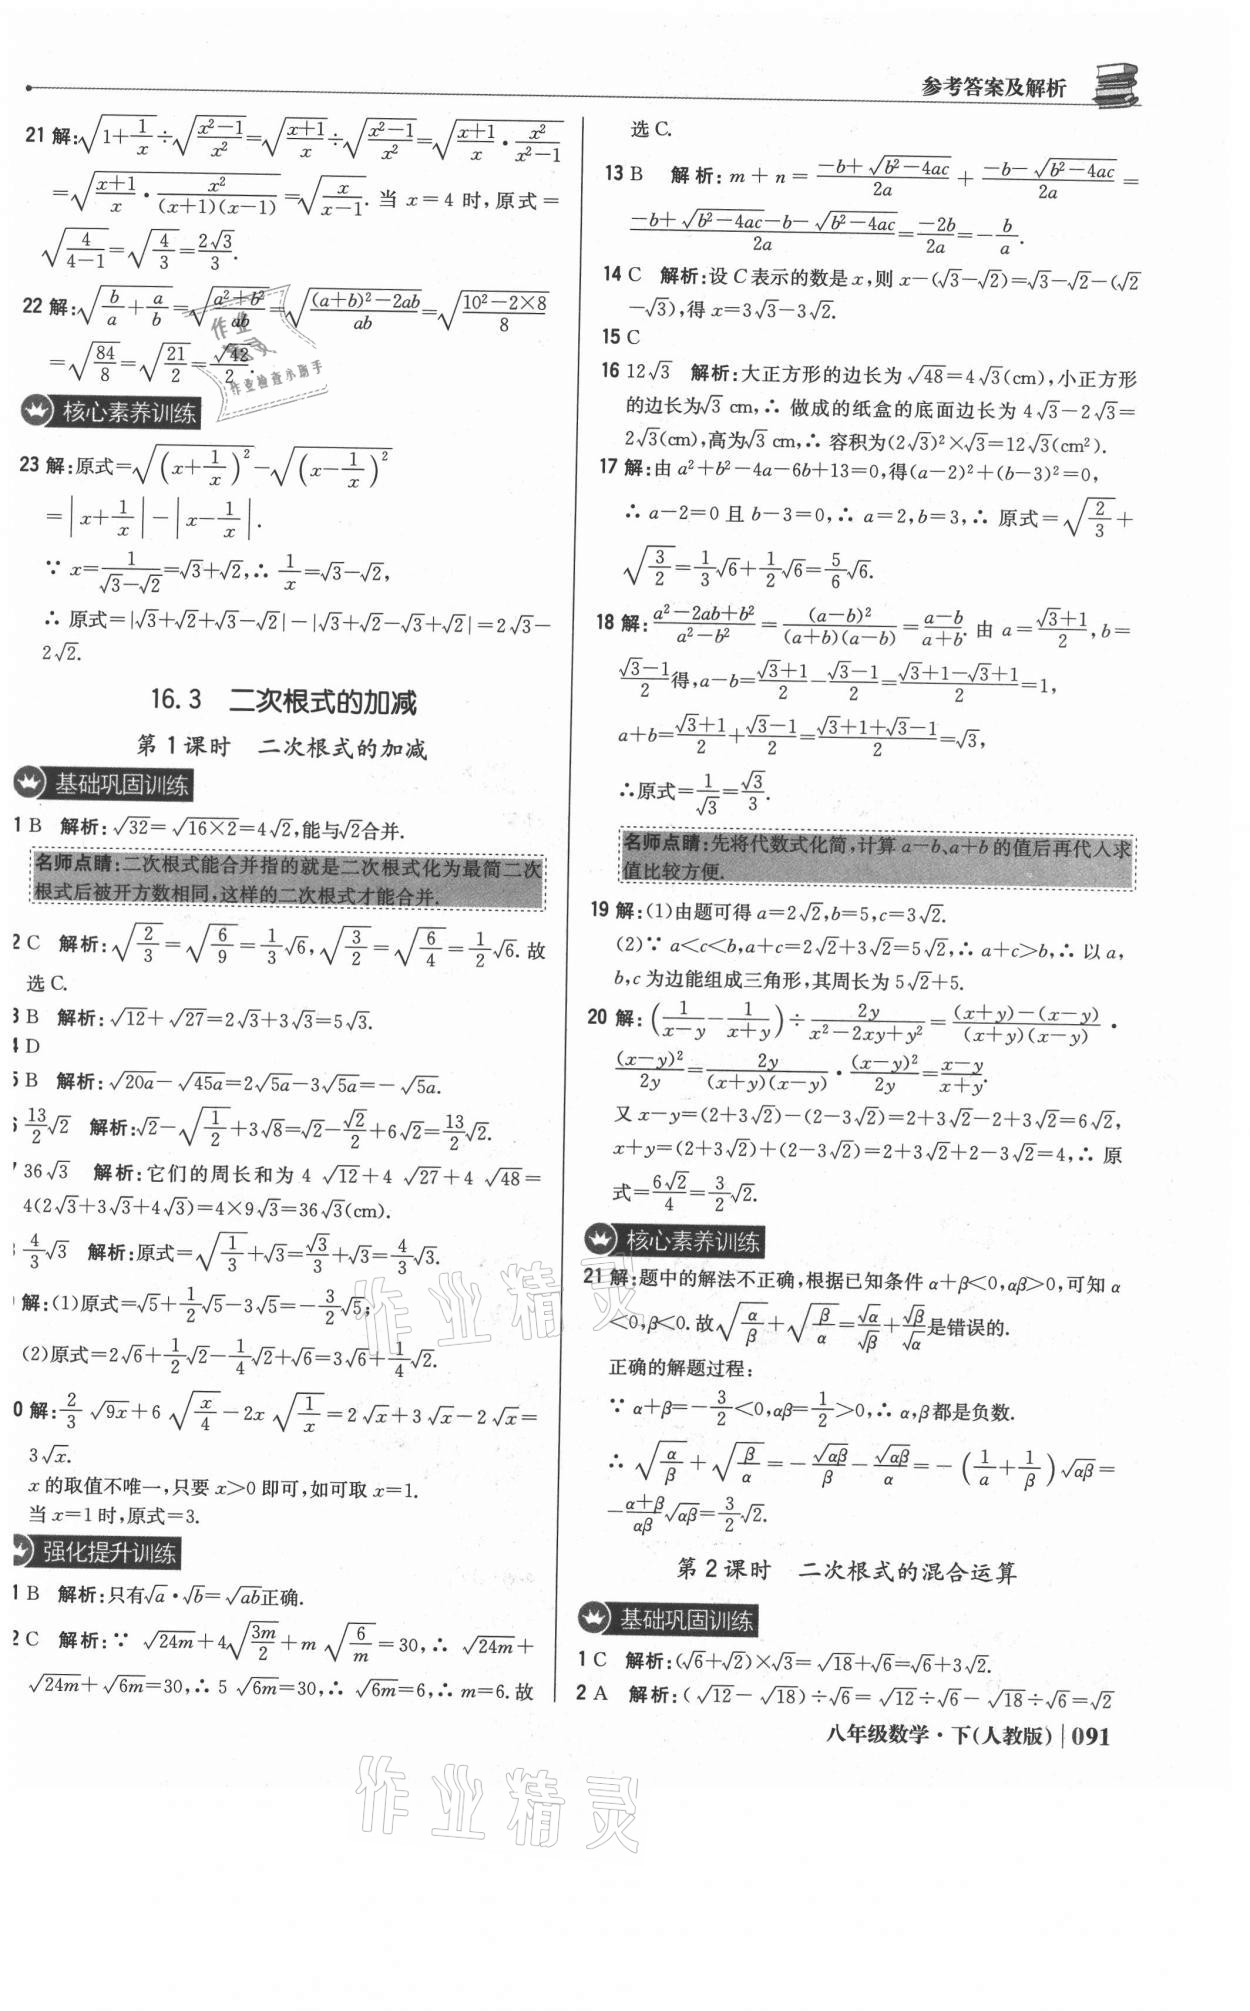 参考答案及解析
21 解:√(1+1/x)÷√((x²−1)/x²)=√((x+1)/x)÷√((x²−1)/x²)=√((x+1)/x·x²/(x²−1))
=√((x+1)/x·x²/((x+1)(x−1)))=√(x/(x−1)). 当 x=4 时,原式=
√(4/(4−1))=√(4/3)=2√3/3.
22 解:√(b/a+a/b)=√((a²+b²)/ab)=√(((a+b)²−2ab)/ab)=√((10²−2×8)/8)
=√(84/8)=√(21/2)=√42/2.
核心素养训练
23 解:原式=√((x+1/x)²)−√((x−1/x)²)
=|x+1/x|−|x−1/x|.
∵ x=1/(√3−√2)=√3+√2,∴ 1/x=√3−√2,
∴ 原式=|√3+√2+√3−√2|−|√3+√2−√3+√2|=2√3−
2√2.
16.3 二次根式的加减
第 1 课时 二次根式的加减
基础巩固训练
1 B 解析:√32=√(16×2)=4√2,能与√2合并.
名师点睛:二次根式能合并指的就是二次根式化为最简二次
根式后被开方数相同,这样的二次根式才能合并.
2 C 解析:√(2/3)=√(6/9)=1/3√6,√(3/2)=√(6/4)=1/2√6. 故
选 C.
3 B 解析:√12+√27=2√3+3√3=5√3.
4 D
5 B 解析:√20a−√45a=2√5a−3√5a=−√5a.
6 13/2√2 解析:√2−√(1/2)+3√8=√2−√2/2+6√2=13/2√2.
7 36√3 解析:它们的周长和为 4√12+4√27+4√48=
4(2√3+3√3+4√3)=4×9√3=36√3(cm).
4/3√3 解析:原式=√(1/3)+√3=√3/3+√3=4/3√3.
解:(1)原式=√5+1/2√5−3√5=−3/2√5;
(2)原式=2√6+1/2√2−1/4√2+√6=3√6+1/4√2.
0 解:2/3√9x+6√(x/4)−2x√(1/x)=2√x+3√x−2√x=
3√x.
x 的取值不唯一,只要 x>0 即可,如可取 x=1.
当 x=1 时,原式=3.
强化提升训练
1 B 解析:只有√a·√b=√ab正确.
2 C 解析:∵ √24m+4√(3m/2)+m√(6/m)=30,∴ √24m+
√24m+√6m=30,∴ 5√6m=30,∴ √6m=6,∴ m=6. 故
选 C.
13 B 解析:m+n=(−b+√(b²−4ac))/2a+(−b−√(b²−4ac))/2a=
(−b+√(b²−4ac)−b−√(b²−4ac))/2a=−2b/2a=−b/a.
14 C 解析:设 C 表示的数是 x,则 x−(√3−√2)=√3−√2−(√2
−√3),得 x=3√3−3√2.
15 C
16 12√3 解析:大正方形的边长为 √48=4√3(cm),小正方形
的边长为√3 cm,∴ 做成的纸盒的底面边长为 4√3−2√3=
2√3(cm),高为√3 cm,∴ 容积为(2√3)²×√3=12√3(cm²).
17 解:由 a²+b²−4a−6b+13=0,得(a−2)²+(b−3)²=0,
∴ a−2=0 且 b−3=0,∴ a=2,b=3,∴ 原式=√(2/3)+
√(3/2)=1/3√6+1/2√6=5/6√6.
18 解:(a²−2ab+b²)/(a²−b²)=(a−b)²/((a+b)(a−b))=(a−b)/(a+b). 由 a=(√3+1)/2,b=
(√3−1)/2得,a−b=(√3+1)/2−(√3−1)/2=(√3+1−√3+1)/2=1,
a+b=(√3+1)/2+(√3−1)/2=(√3+1+√3−1)/2=√3,
∴原式=1/√3=√3/3.
名师点睛:先将代数式化简,计算 a−b、a+b 的值后再代入求
值比较方便.
19 解:(1)由题可得 a=2√2,b=5,c=3√2.
(2)∵ a<c<b,a+c=2√2+3√2=5√2,∴ a+c>b,∴ 以 a,
b,c 为边能组成三角形,其周长为 5√2+5.
20 解:(1/(x−y)−1/(x+y))÷2y/(x²−2xy+y²)=((x+y)−(x−y))/((x+y)(x−y))·
(x−y)²/2y=2y/((x+y)(x−y))·(x−y)²/2y=(x−y)/(x+y).
又 x−y=(2+3√2)−(2−3√2)=2+3√2−2+3√2=6√2,
x+y=(2+3√2)+(2−3√2)=2+3√2+2−3√2=4,∴ 原
式=6√2/4=3/2√2.
核心素养训练
21 解:题中的解法不正确,根据已知条件 α+β<0,αβ>0,可知 α
<0,β<0. 故√(α/β)+√(β/α)=√α/√β+√β/√α是错误的.
正确的解题过程:
∵ α+β=−3/2<0,αβ=1/2>0,∴ α,β都是负数.
∴ √(α/β)+√(β/α)=−√αβ/β−√αβ/α=−(1/a+1/β)√αβ=
−(α+β)/αβ√αβ=3/2√2.
第 2 课时 二次根式的混合运算
基础巩固训练
1 C 解析:(√6+√2)×√3=√18+√6=√6+3√2.
2 A 解析:(√12−√18)÷√6=√12÷√6−√18÷√6=√2
八年级数学·下(人教版) | 091
作业精灵
作业精灵
作业检查小助手
作业精灵